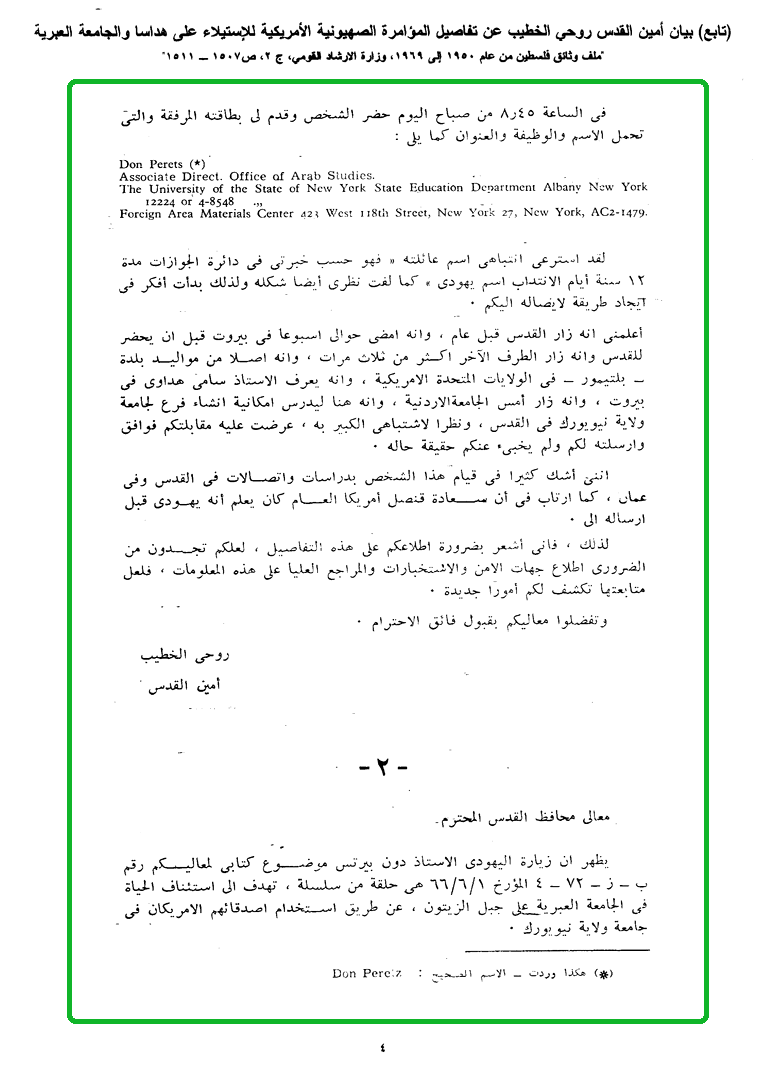 (تابع) بيان أمين القدس روحي الخطيب عن تفاصيل المؤامرة الصهيونية الأمريكية للإستيلاء على هداسا والجامعة العبرية
"ملف وثائق فلسطين من عام ١٩٥٠ إلى ١٩٦٩، وزارة الارشاد القومي، ج ٢، ص١٥٠٧ – ١٥١١"
فى الساعة ٨٫٤٥ من صباح اليوم حضر الشخص وقدم لى بطاقته المرفقة والتى
تحمل الاسم والوظيفة والعنوان كما يلى :
Don Perets (*)
Associate Direct. Office of Arab Studies.
The University of the State of New York State Education Department Albany New York
12224 or 4-8548
Foreign Area Materials Center 423 West 118th Street, New York 27, New York, AC2-1479.
لقد استرعى انتباهى اسم عائلته « فهو حسب خبرتى فى دائرة الجوازات مدة
١٢ سنة أيام الانتداب اسم يهودى » كما لفت نظرى أيضا شكله ولذلك بدأت أفكر فى
ايجاد طريقة لايصاله اليكم ٠
أعلمنى انه زار القدس قبل عام ، وانه امضى حوالى اسبوعا فى بيروت قبل ان يحضر
للقدس وانه زار الطرف الآخر اكثر من ثلاث مرات ، وانه اصلا من مواليد بلدة
ـ بلتيمور ـ فى الولايات المتحدة الامريكية ، وانه يعرف الاستاذ سامى هداوى فى
بيروت ، وانه زار أمس الجامعةالاردنية ، وانه هنا ليدرس امكانية انشاء فرع لجامعة
ولاية نيويورك فى القدس ، ونظرا لاشتباهى الكبير به ، عرضت عليه مقابلتكم فوافق
وارسلته لكم ولم يخبىء عنكم حقيقة حاله ٠
اننى أشك كثيرا فى قيام هذا الشخص بدراسات واتصالات فى القدس وفى
عمان ، كما ارتاب فى أن سعادة قنصل أمريكا العام كان يعلم أنه يهودى قبل
ارساله الى ٠
لذلك ، فانى أشعر بضرورة اطلاعكم على هذه التفاصيل ، لعلكم تجدون من
الضرورى اطلاع جهات الامن والاستخبارات والمراجع العليا على هذه المعلومات ، فلعل
متابعتها تكشف لكم أمورا جديدة ٠
وتفضلوا معاليكم بقبول فائق الاحترام ٠
روحى الخطيب
أمين القدس
- ٢ -
معالى محافظ القدس المحترم
يظهر ان زيارة اليهودى الاستاذ دون بيرتس موضوع كتابى لمعاليكم رقم
ب ـ ز ـ ٧٢ ـ ٤ المؤرخ ٦٦/٦/١ هى حلقة من سلسلة ، تهدف الى استئناف الحياة
فى الجامعة العبرية على جبل الزيتون ، عن طريق استخدام اصدقائهم الامريكان فى
جامعة ولاية نيويورك ٠
(*) هكذا وردت ـ الاسم الصحيح : Don Peretz
٤